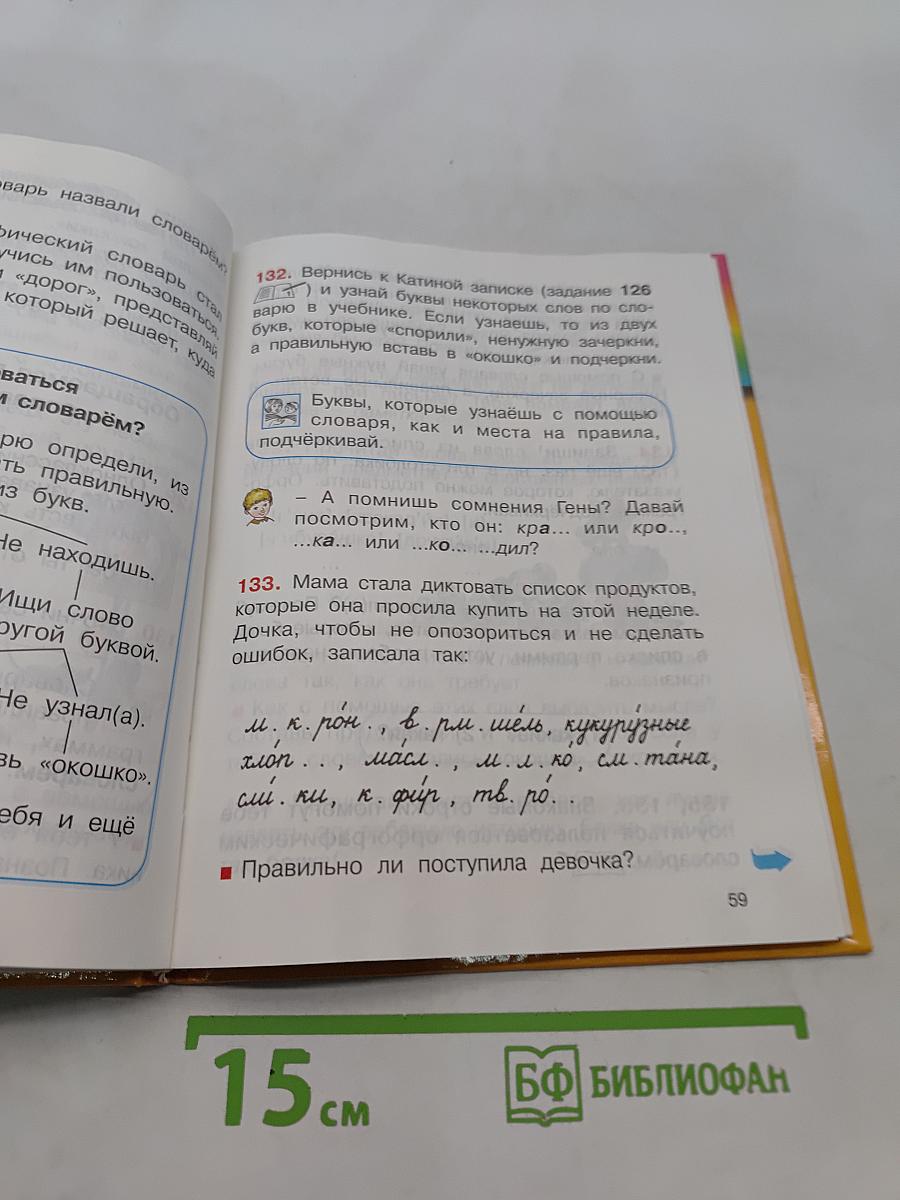 назвали словарём?
словарь стал
учись им пользоваться.
«дорог», представляй
который решает, куда
словарём?
определи, из
правильную.
из букв.
Не находишь.
Ищи слово
другой буквой.
Не узнал(а).
«окошко».
и ещё
132. Вернись к Катиной записке (задание 126
) и узнай буквы некоторых слов по сло-
варю в учебнике. Если узнаешь, то из двух
букв, которые «спорили», ненужную зачеркни,
а правильную вставь в «окошко» и подчеркни.
Буквы, которые узнаёшь с помощью
словаря, как и места на правила,
подчёркивай.
– А помнишь сомнения Гены? Давай
посмотрим, кто он: кра... или кро...,
...ка... или ...ко... ...дил?
133. Мама стала диктовать список продуктов,
которые она просила купить на этой неделе.
Дочка, чтобы не опозориться и не сделать
ошибок, записала так:
м . к . ро́н . , в . рм . ше́ль, кукуру́зные
хло́п . . , ма́сл . , м . л . ко́, см . та́на,
сли́ . ки, к . фи́р , тв . ро́ . .
Правильно ли поступила девочка?
59
15 см
БФ БИБЛИОФАН